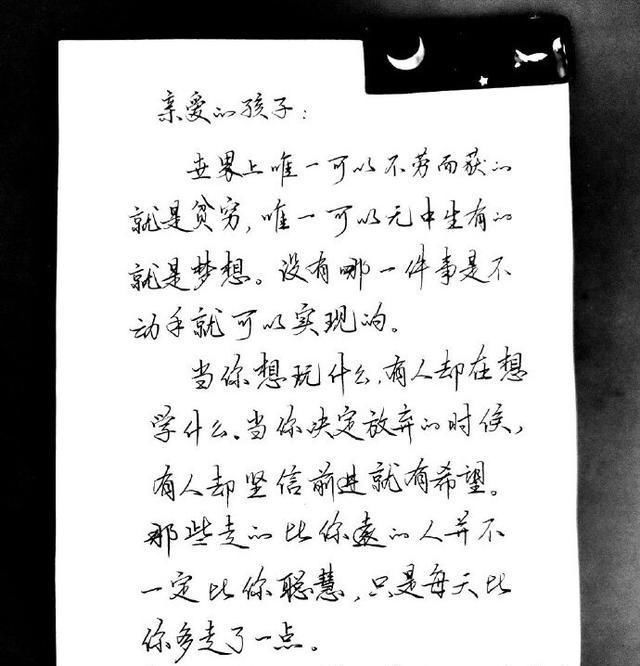 亲爱的孩子:
世界上唯一可以不劳而获的
就是贫穷,唯一可以无中生有的
就是梦想。没有哪一件事是不
动手就可以实现的。
当你想玩什么,有人却在想
学什么。当你决定放弃的时候,
有人却坚信前进就有希望。
那些走的比你远的人并不
一定比你聪慧,只是每天比
你多走了一点。